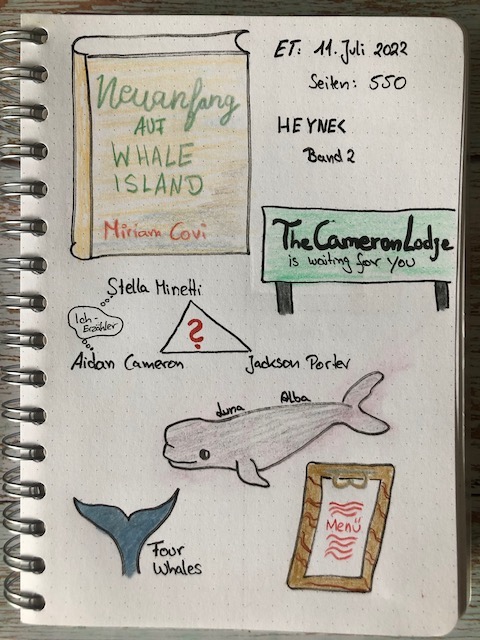 Neuanfang
AUF
WHALE
ISLAND
Miriam Covi
ET: 11. Juli 2022
Seiten: 550
HEYNE<
Band 2
The Cameron Lodje
is waiting for you
Stella Minetti
Ich-
Erzähler
?
Aidan Cameron
Jackson Porter
Luna
Alba
Four
Whales
Menü